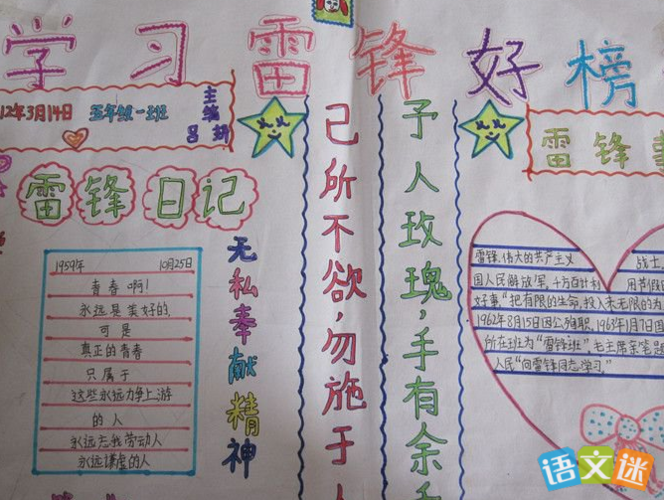 学习雷锋好榜
12年3月14日 五年级一班
主编
吕妍
雷锋日记
1959年 10月25日
青春啊!
永远是美好的,
可是
真正的青春
只属于
这些永远力争上游
的人
永远忘我劳动人
永远谦虚的人
无私奉献精神
己所不欲,勿施于人
予人玫瑰,手有余
雷锋
雷锋,伟大的共产主义 战士
国人民解放军,千方百计 用节假
好事。"把有限的生命,投入未无限的为
1962年8月15日因公殉职,1963年1月7日国
所在班为"雷锋班",毛主席亲笔题
人民"向雷锋同志学习"
语文迷